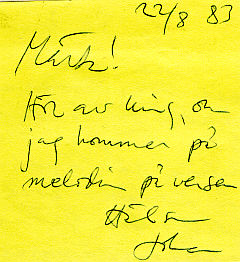 22/8 83
Märta!
Hör av mig, om
jag kommer på
melodin på versen
Hälsn
Johan